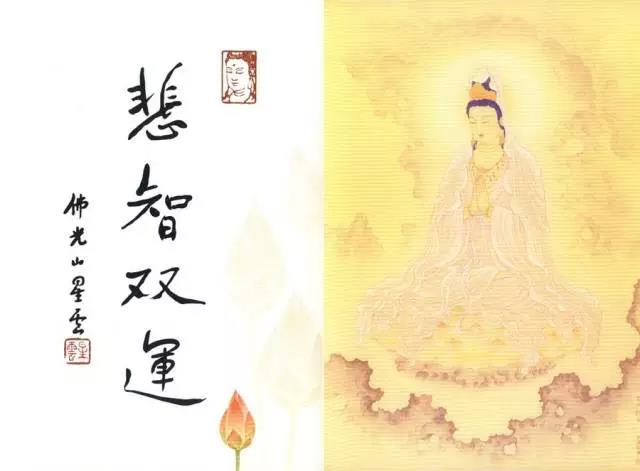 悲智双運
佛光山星雲
星雲